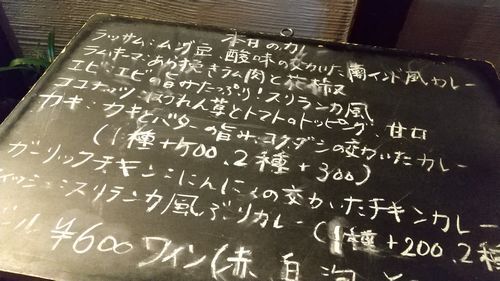 本日のカレー
フッサム:ムング豆 酸味の交かいた南インド風カレー
ラムキーマ:あら挽きラム肉と花椒
エビ:エビの旨みたっぷり!スリランカ風
ココナッツ:ほうれん草とトマトのトッピング:甘口
カキ:カキとバターの旨み、コクがンの交かいたカレー
(1種+500、2種+300)
ガーリックチキン:にんにくの交かいたチキンカレー
ィッシュ:スリランカ風ぶりカレー (1種+200、2種
ール ¥600 ワイン(赤、白、泡